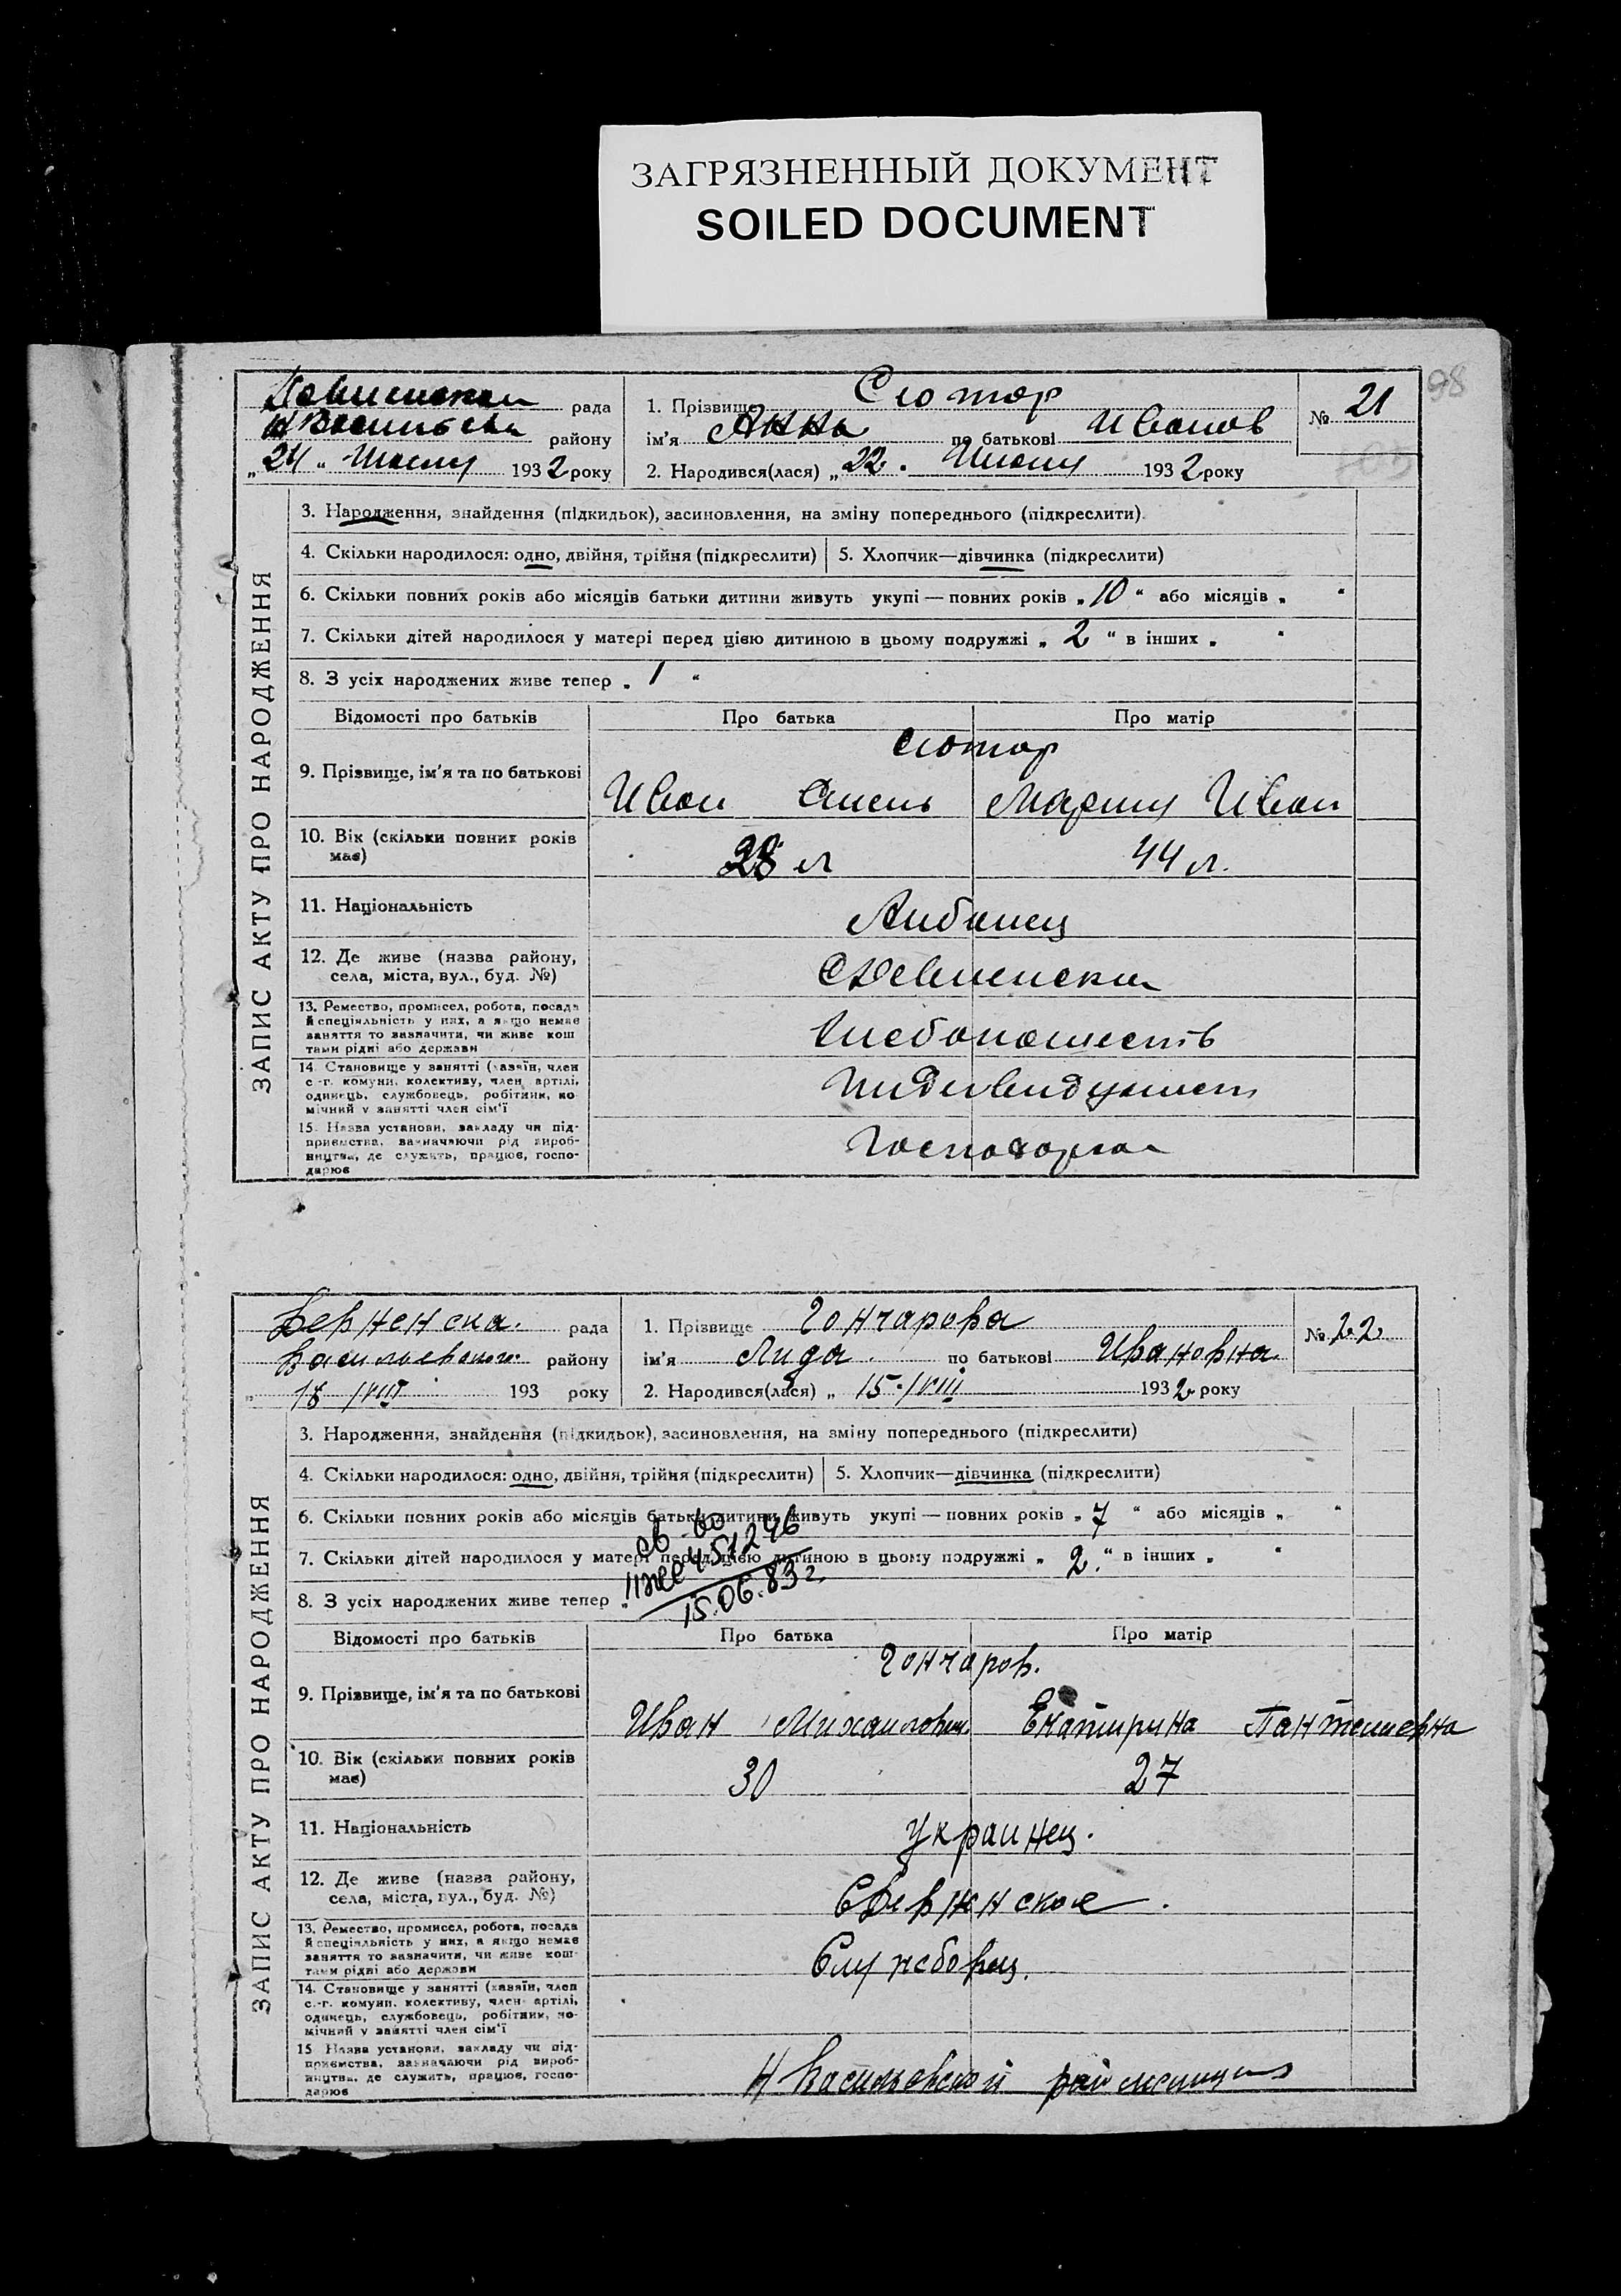 ЗАГРЯЗНЕННЫЙ ДОКУМЕНТ
SOILED DOCUMENT
98
рада
району
„24“ 1932 року
1. Прізвище Сютор
ім'я Анна по батькові Иванов
2. Народився(лася) „22“ Июня 1932 року
№ 21
ЗАПИС АКТУ ПРО НАРОДЖЕННЯ
3. Народження, знайдення (підкидьок), засиновлення, на зміну попереднього (підкреслити).
4. Скільки народилося: одно, двійня, трійня (підкреслити) 5. Хлопчик—дівчинка (підкреслити)
6. Скільки повних років або місяців батьки дитини живуть укупі — повних років „10“ або місяців „ “
7. Скільки дітей народилося у матері перед цією дитиною в цьому подружжі „2“ в інших „ “
8. З усіх народжених живе тепер „1“
Відомості про батьків Про батька Про матір
Сютор
9. Прізвище, ім'я та по батькові Иван Мария Иван
10. Вік (скільки повних років має) 28 л 44 л.
11. Національність
12. Де живе (назва району, села, міста, вул., буд. №)
13. Ремество, промисел, робота, посада й спеціяльність у них, а якщо немає заняття то зазначити, чи живе коштами рідні або держави
14. Становище у занятті (хазяїн, член с.-г. комуни, колективу, член артілі, одинець, службовець, робітник, помічний у занятті член сім'ї
15. Назва установи, закладу чи підприємства, зазначаючи рід виробництва, де служить, працює, господарює
рада
району
18/VIII 193 року
1. Прізвище Гончарова
ім'я Лида по батькові Ивановна
2. Народився(лася) „15/VIII 1932 року
№ 22
ЗАПИС АКТУ ПРО НАРОДЖЕННЯ
3. Народження, знайдення (підкидьок), засиновлення, на зміну попереднього (підкреслити)
4. Скільки народилося: одно, двійня, трійня (підкреслити) 5. Хлопчик—дівчинка (підкреслити)
6. Скільки повних років або місяців батьки дитини живуть укупі — повних років „7“ або місяців „ “
7. Скільки дітей народилося у матері перед цією дитиною в цьому подружжі „2.“ в інших „ “
8. З усіх народжених живе тепер „
св-во
451246
15.06.83 г.
Відомості про батьків Про батька Про матір
Гончаров.
9. Прізвище, ім'я та по батькові Иван Михайлович Екатирина
10. Вік (скільки повних років має) 30 27
11. Національність Украинец.
12. Де живе (назва району, села, міста, вул., буд. №)
13. Ремество, промисел, робота, посада й спеціяльність у них, а якщо немає заняття то зазначити, чи живе коштами рідні або держави Службовец.
14. Становище у занятті (хазяїн, член с.-г. комуни, колективу, член артілі, одинець, службовець, робітник, помічний у занятті член сім'ї
15 Назва установи, закладу чи підприємства, зазначаючи рід виробництва, де служить, працює, господарює